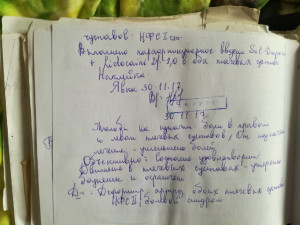 суставов НФС I ст.
Выполнено параартикулярное введение Sol.
+ Lidocaini 2% - 2,0 в оба плечевых сустава
Наклейка
Явка 30.11.17
30.11.17
Жалобы на
боли в правом
и левом плечевых суставах. От
лечения - уменьшение болей.
Объективно: состояние удовлетворит.
Движения в плечевых суставах - умеренно
болезненны и ограничены
Ds: Деформир. артроз обоих плечевых суставов
НФС II, болевой синдром